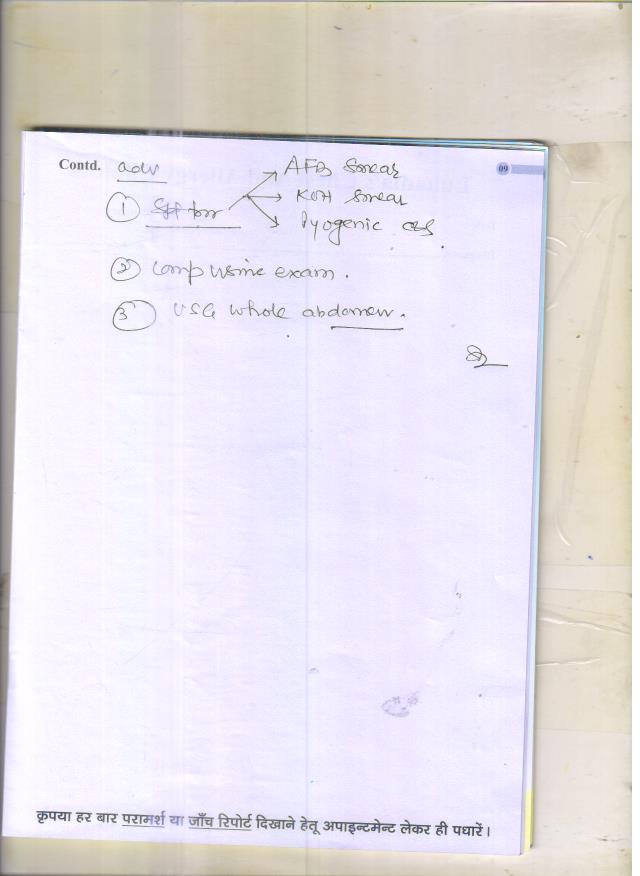 Contd. adv
09
AFB Smear
① Sputum → KOH Smear
Pyogenic c/s
② Comp urine exam.
③ USG Whole abdomen.
कृपया हर बार परामर्श या जाँच रिपोर्ट दिखाने हेतू अपाइन्टमेन्ट लेकर ही पधारें।